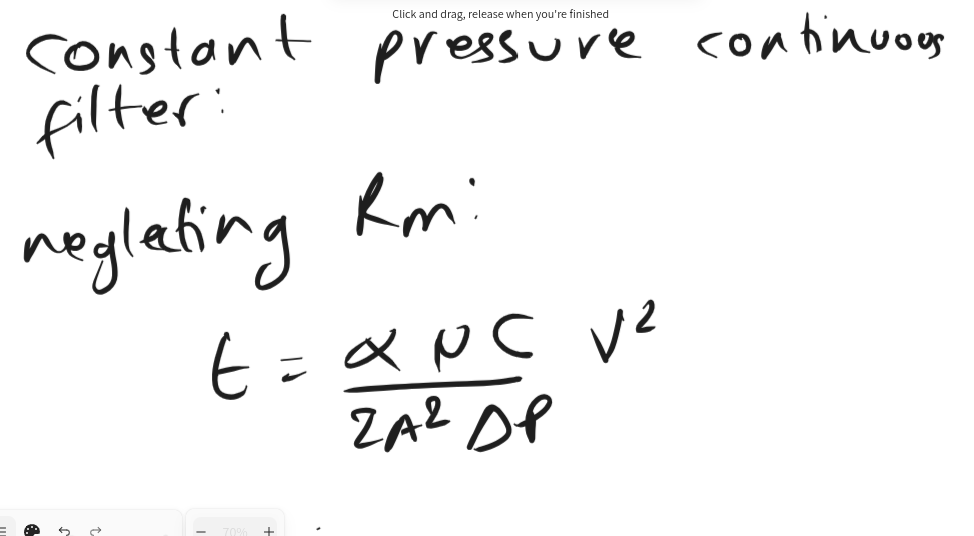 Click and drag, release when you're finished
constant pressure continuous
filter:
neglecting Rm:
t = αμC/2A²ΔP V²
70%